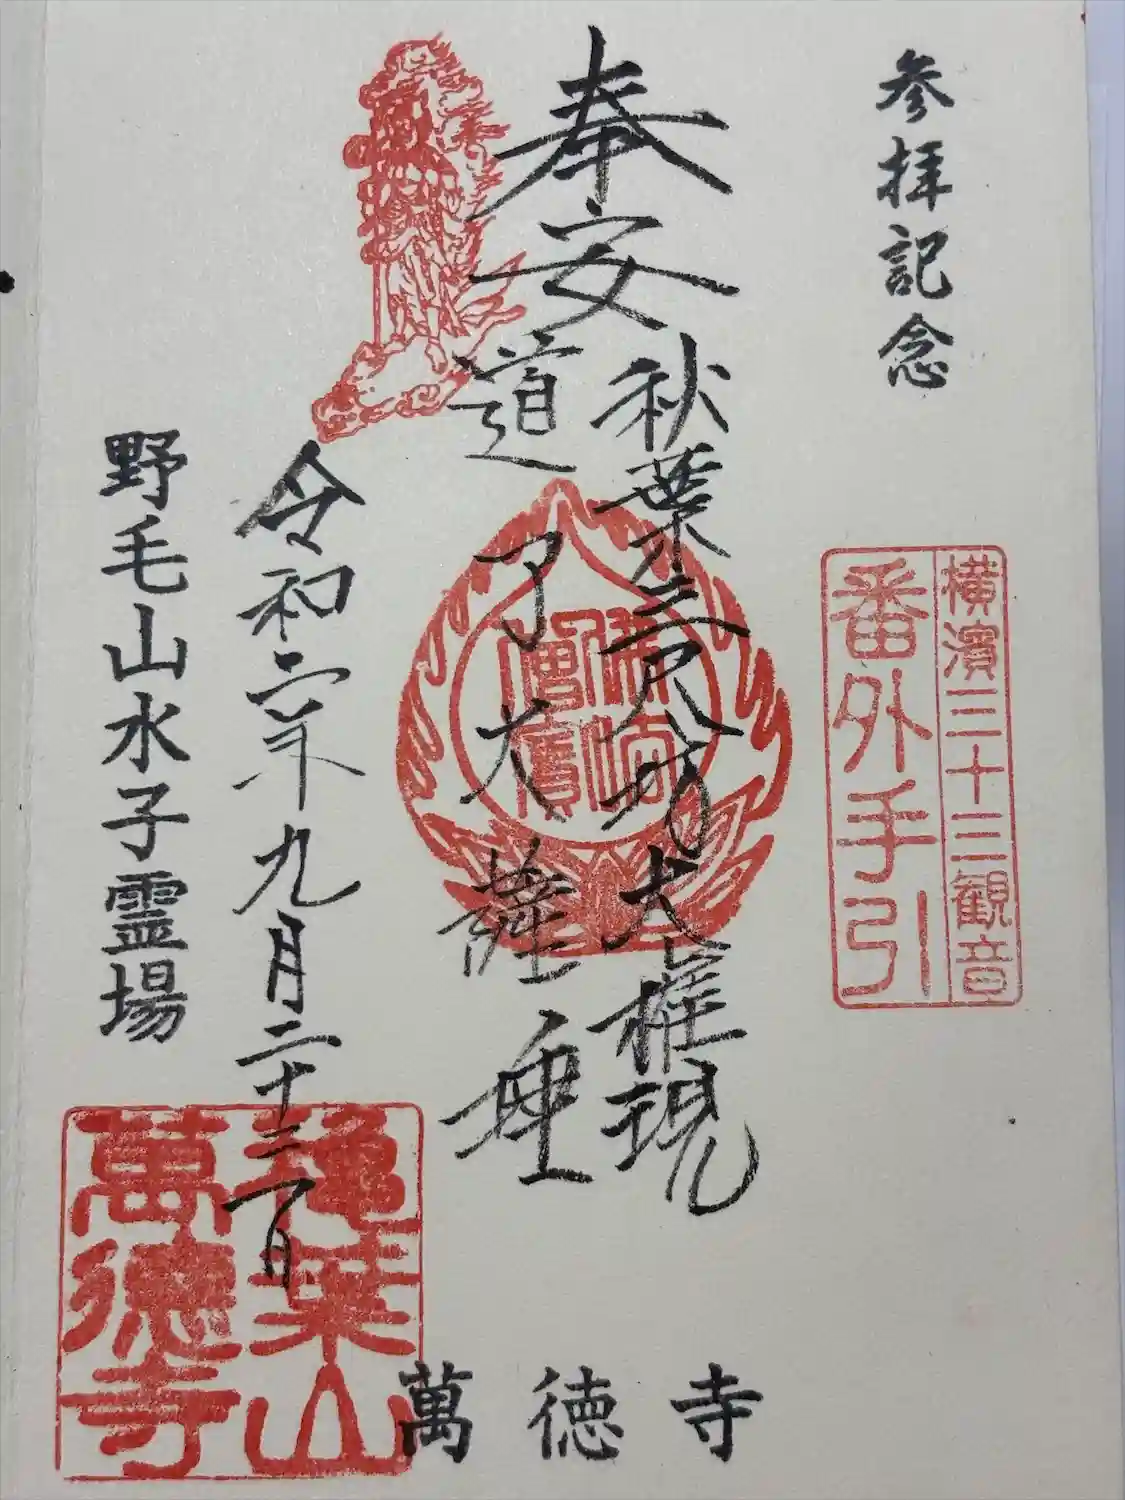 参拝記念
横濱三十三観音
番外手引
奉安
秋葉三尺坊大権現
道了大薩埵
佛法僧寳
令和六年九月二十三日
野毛山水子霊場
萬徳寺
葉山
萬徳寺